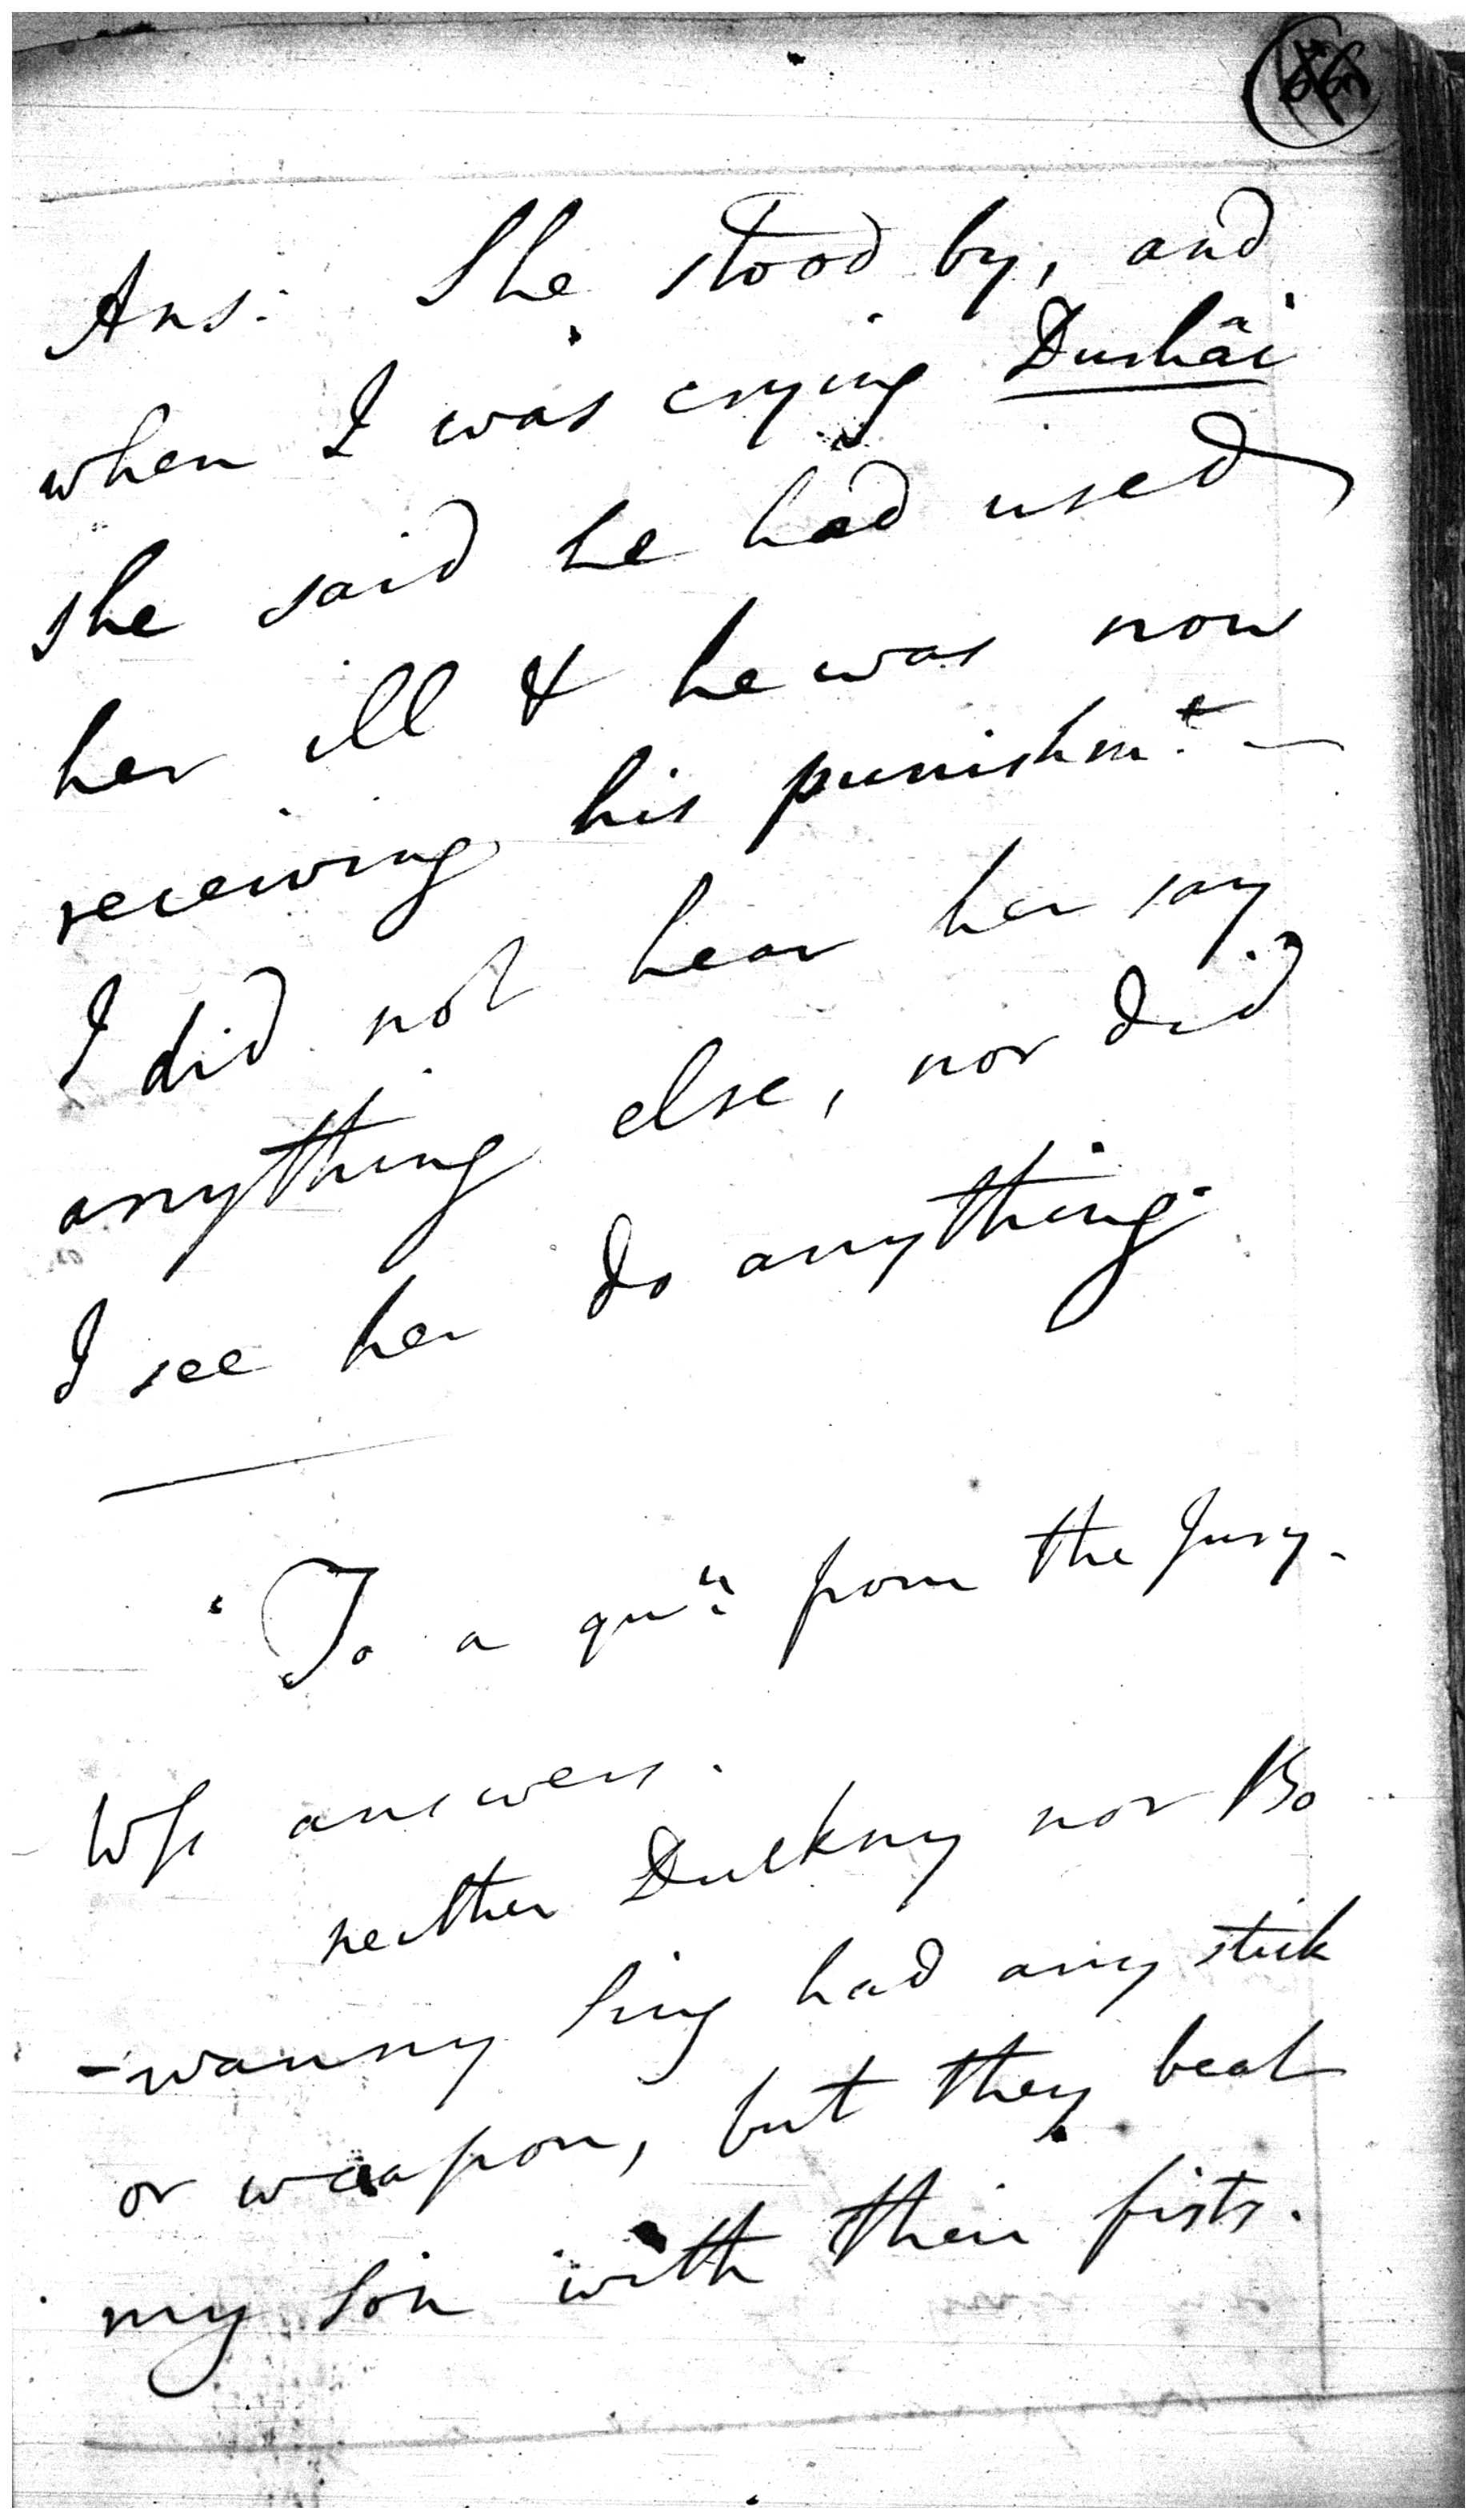 Ans. She stood by, and
when I was crying Duhâi
she said he had used
her ill & he was now
receiving his punishmt. —
I did not hear her say
anything else, nor did
I see her do anything.
To a qun. from the Jury.
Ws answers.
neither Duckny nor Bo
-wanny Sing had any stick
or weapon, but they beat
my son with their fists.